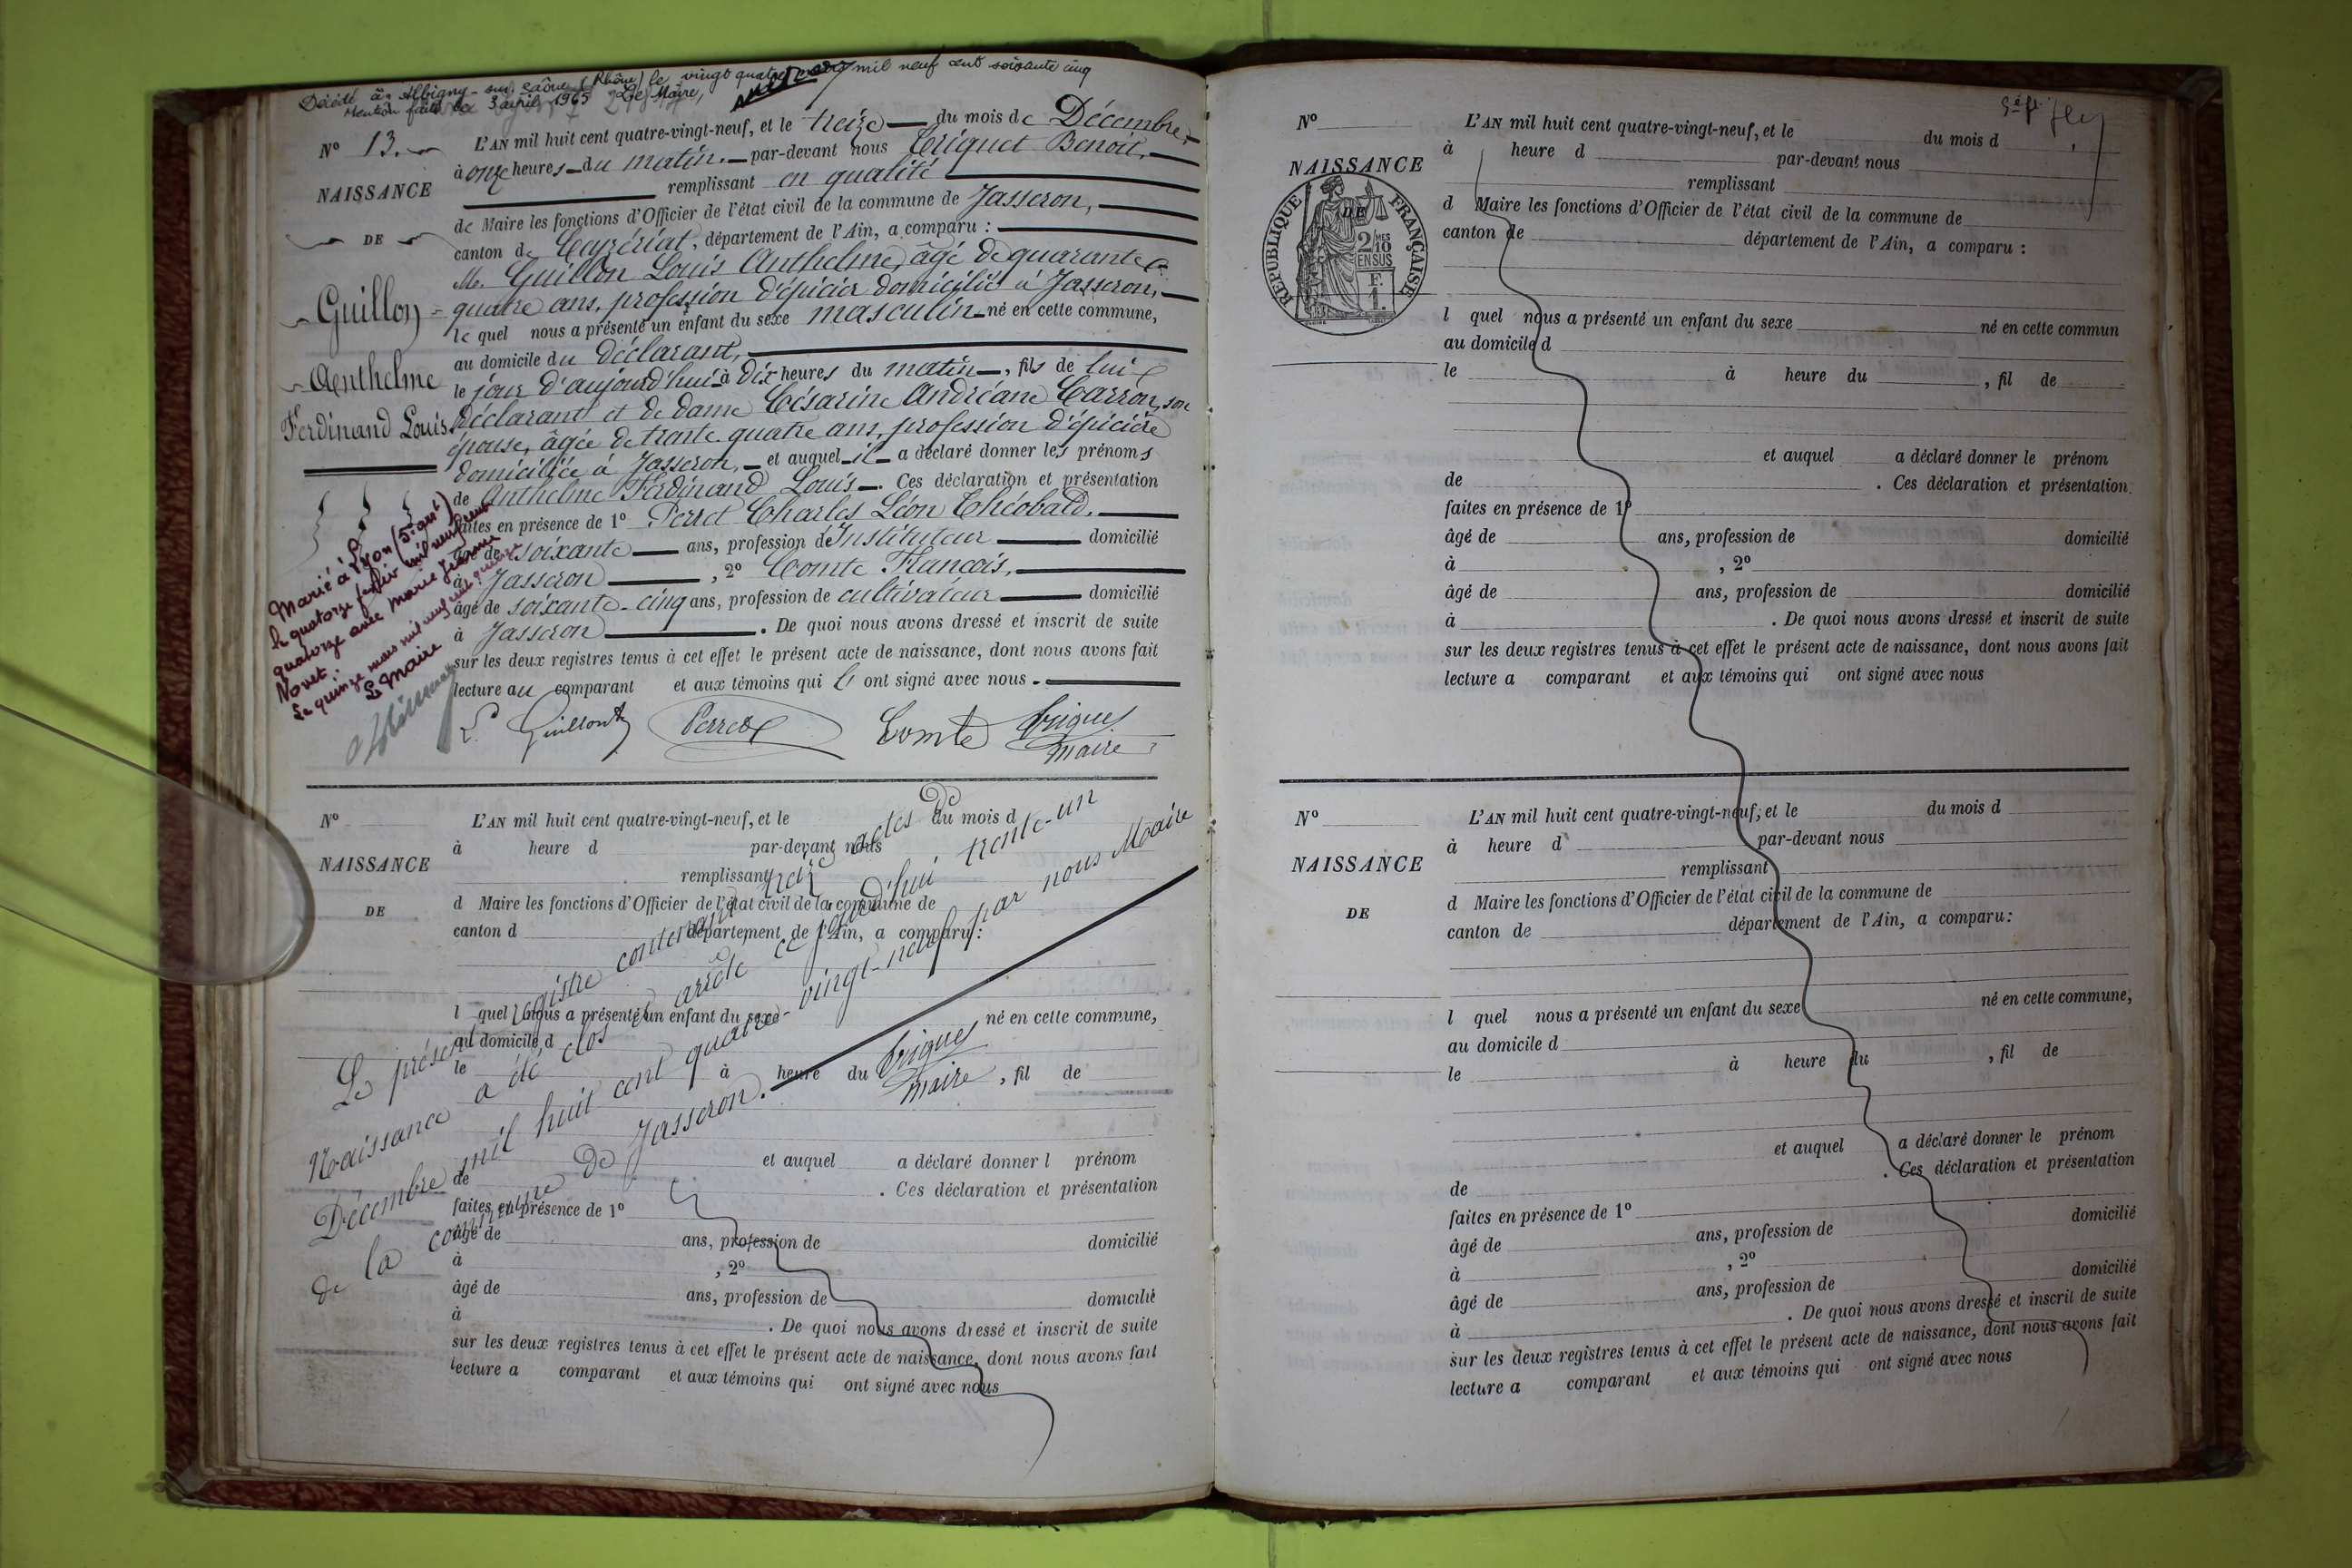 Décédé à Albigny-sur-Saône (Rhône) le vingt quatre mars mil neuf cent soixante cinq
Mention faite le 3 avril 1965 Le Maire,
N° 13.
NAISSANCE
DE
Guillon
Anthelme
Ferdinand Louis
L'AN mil huit cent quatre-vingt-neuf, et le treize du mois de Décembre,
à onze heures du matin. par-devant nous Triquet Benoit,
remplissant en qualité
de Maire les fonctions d'Officier de l'état civil de la commune de Jasseron,
canton de Ceyzériat, département de l'Ain, a comparu :
Mr. Guillon Louis Anthelme, âgé de quarante
quatre ans, profession d'épicier domicilié à Jasseron,
le quel nous a présenté un enfant du sexe masculin né en cette commune,
au domicile du déclarant,
le jour d'aujourd'hui à dix heures du matin, fils de lui
déclarant et de dame Césarine Andréane Carron, son
épouse, âgée de trente quatre ans, profession d'épicière
domiciliée à Jasseron, et auquel il a déclaré donner les prénoms
de Anthelme Ferdinand Louis. Ces déclaration et présentation
faites en présence de 1° Perret Charles Léon Théobald.
âgé de soixante ans, profession d'Instituteur domicilié
à Jasseron, 2° Comte François,
âgé de soixante-cinq ans, profession de cultivateur domicilié
à Jasseron. De quoi nous avons dressé et inscrit de suite
sur les deux registres tenus à cet effet le présent acte de naissance, dont nous avons fait
lecture au comparant et aux témoins qui ont signé avec nous.
Marié à Lyon (5e arrt)
le quatorze février mil neuf cent
quatorze avec Marie Jeanne
Novet.
Le quinze mars mil neuf cent quinze
Le Maire
L. Guillon Perret Comte Triquet
maire
N°
NAISSANCE
DE
L'AN mil huit cent quatre-vingt-neuf, et le du mois d
à heure d par-devant nous
remplissant
d Maire les fonctions d'Officier de l'état civil de la commune de
canton d département de l'Ain, a comparu :
l quel nous a présenté un enfant du sexe né en cette commune,
au domicile d
le à heure du , fil de
et auquel a déclaré donner l prénom
de . Ces déclaration et présentation
faites en présence de 1°
âgé de ans, profession de domicilié
à , 2°
âgé de ans, profession de domicilié
à . De quoi nous avons dressé et inscrit de suite
sur les deux registres tenus à cet effet le présent acte de naissance, dont nous avons fait
lecture a comparant et aux témoins qui ont signé avec nous
Le présent registre contenant treize actes de
Naissance a été clos et arrêté ce jourd'hui trente-un
Décembre mil huit cent quatre-vingt-neuf par nous Maire
de la commune de Jasseron.
Triquet
maire
N°
NAISSANCE
DE
RÉPUBLIQUE FRANÇAISE
2/10MES
EN SUS
F.
1.
L'AN mil huit cent quatre-vingt-neuf, et le du mois d
à heure d par-devant nous
remplissant
d Maire les fonctions d'Officier de l'état civil de la commune de
canton de département de l'Ain, a comparu :
l quel nous a présenté un enfant du sexe né en cette commun
au domicile d
le à heure du , fil de
et auquel a déclaré donner le prénom
de . Ces déclaration et présentation
faites en présence de 1°
âgé de ans, profession de domicilié
à , 2°
âgé de ans, profession de domicilié
à . De quoi nous avons dressé et inscrit de suite
sur les deux registres tenus à cet effet le présent acte de naissance, dont nous avons fait
lecture a comparant et aux témoins qui ont signé avec nous
N°
NAISSANCE
DE
L'AN mil huit cent quatre-vingt-neuf, et le du mois d
à heure d par-devant nous
remplissant
d Maire les fonctions d'Officier de l'état civil de la commune de
canton de département de l'Ain, a comparu :
l quel nous a présenté un enfant du sexe né en cette commune,
au domicile d
le à heure du , fil de
et auquel a déclaré donner le prénom
de . Ces déclaration et présentation
faites en présence de 1°
âgé de ans, profession de domicilié
à , 2°
âgé de ans, profession de domicilié
à . De quoi nous avons dressé et inscrit de suite
sur les deux registres tenus à cet effet le présent acte de naissance, dont nous avons fait
lecture a comparant et aux témoins qui ont signé avec nous